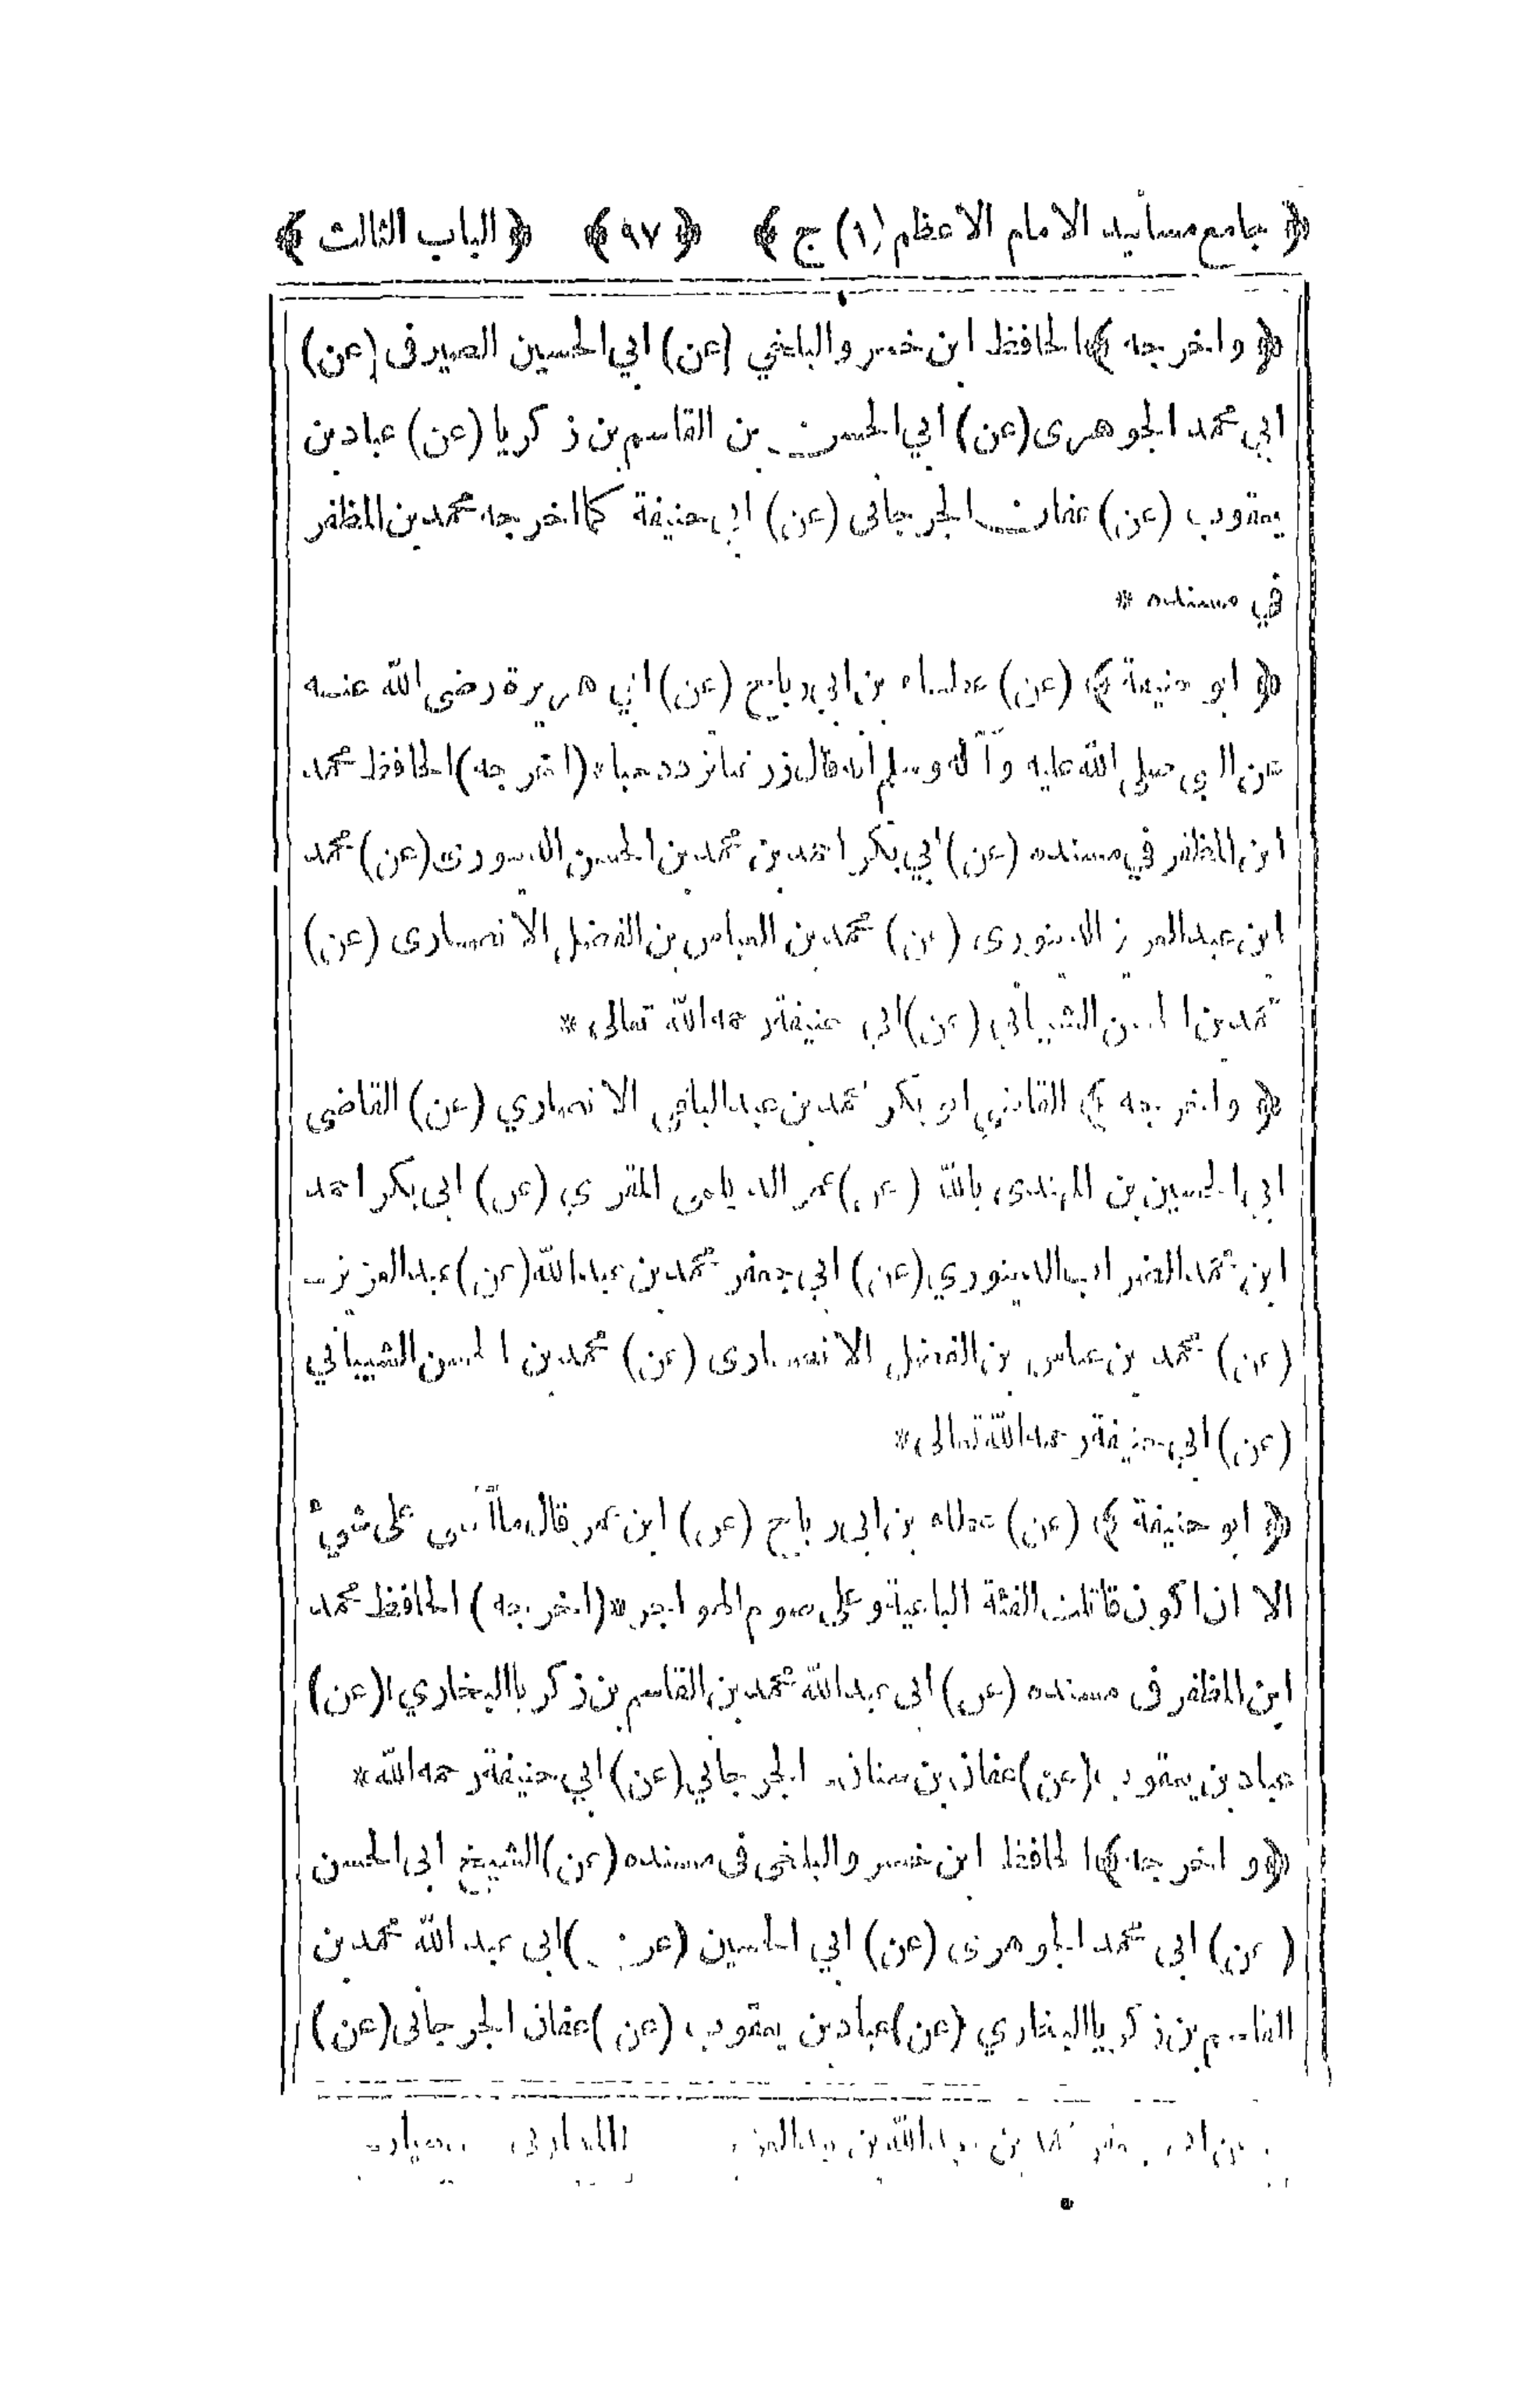 ﴿ جامع مسانيد الامام الاعظم (١) ج ﴾ ﴿ ٩٧ ﴾ ﴿ الباب الثالث ﴾
﴿ واخرجه ﴾ الحافظ ابن خسرو البلخي (عن) ابي الحسين الصيرفى (عن)
ابي محمد الجوهرى (عن) ابي الحسن بن القاسم بن زكريا (عن) عباد بن
يعقوب (عن) عفان الجرجانى (عن) ابي حنيفة كما اخرجه محمد بن المظفر
في مسنده *
﴿ ابو حنيفة ﴾ (عن) عطاء بن ابي رباح (عن) ابي هريرة رضى الله عنه
عن النبي صلى الله عليه وآله وسلم انه قال زر غبا تزدد حبا * (اخرجه) الحافظ محمد
ابن المظفر في مسنده (عن) ابي بكر احمد بن محمد بن الحسن الدينورى (عن) محمد
ابن عبد العزيز الدينورى (عن) محمد بن العباس بن الفضل الانصارى (عن)
محمد بن الحسن الشيباني (عن) ابي حنيفة رحمه الله تعالى *
﴿ واخرجه ﴾ القاضي ابو بكر محمد بن عبد الباقى الانصاري (عن) القاضى
ابي الحسين بن المهتدى بالله (عن) عمر المقري (عن) ابى بكر احمد
ابن محمد الضراب الدينوري (عن) ابى جعفر محمد بن عبد الله (عن) عبد العزيز
(عن) محمد بن عباس بن الفضل الانصارى (عن) محمد بن الحسن الشيباني
(عن) ابي حنيفة رحمه الله تعالى *
﴿ ابو حنيفة ﴾ (عن) عطاء بن ابى رباح (عن) ابن عمر قال ما آسى على شيء
الا ان اكون قاتلت الفئة الباغية وعلى صوم الهواجر * (اخرجه) الحافظ محمد
ابن المظفر فى مسنده (عن) ابى عبد الله محمد بن القاسم بن زكريا البخاري (عن)
عباد بن يعقوب (عن) عفان بن سنان الجرجاني (عن) ابي حنيفة رحمه الله *
﴿ واخرجه ﴾ الحافظ ابن خسرو البلخى فى مسنده (عن) الشيخ ابى الحسن
(عن) ابى محمد الجوهرى (عن) ابي الحسين (عن) ابى عبد الله محمد بن
القاسم بن زكريا البخاري (عن) عباد بن يعقوب (عن) عفان الجرجانى (عن)